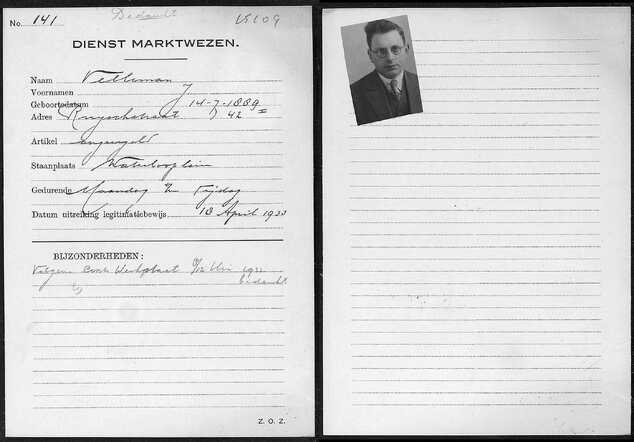 No. 141 Bedankt 15109
DIENST MARKTWEZEN.
Naam Velleman
Voornamen J
Geboortedatum 14-7-1889
Adres Ruyschstraat 42 II
Artikel ongeregeld
Staanplaats Waterlooplein
Gedurende Maandag t/m Vrijdag
Datum uitreiking legitimatiebewijs 18 April 1933
BIJZONDERHEDEN:
Volgens
bedankt
Z. O. Z.